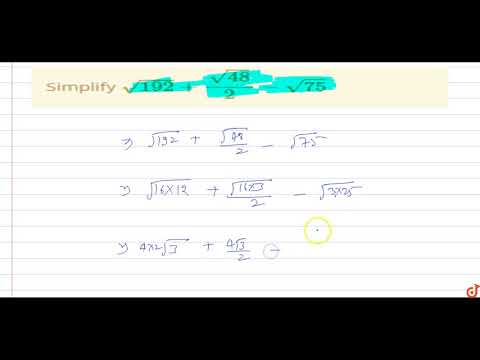 Simplify √192 + √48/2 − √75
⇒ √192 + √48/2 − √75
⇒ √16×12 + √16×3/2 − √3×25
⇒ 4×2√3 + 4√3/2 −